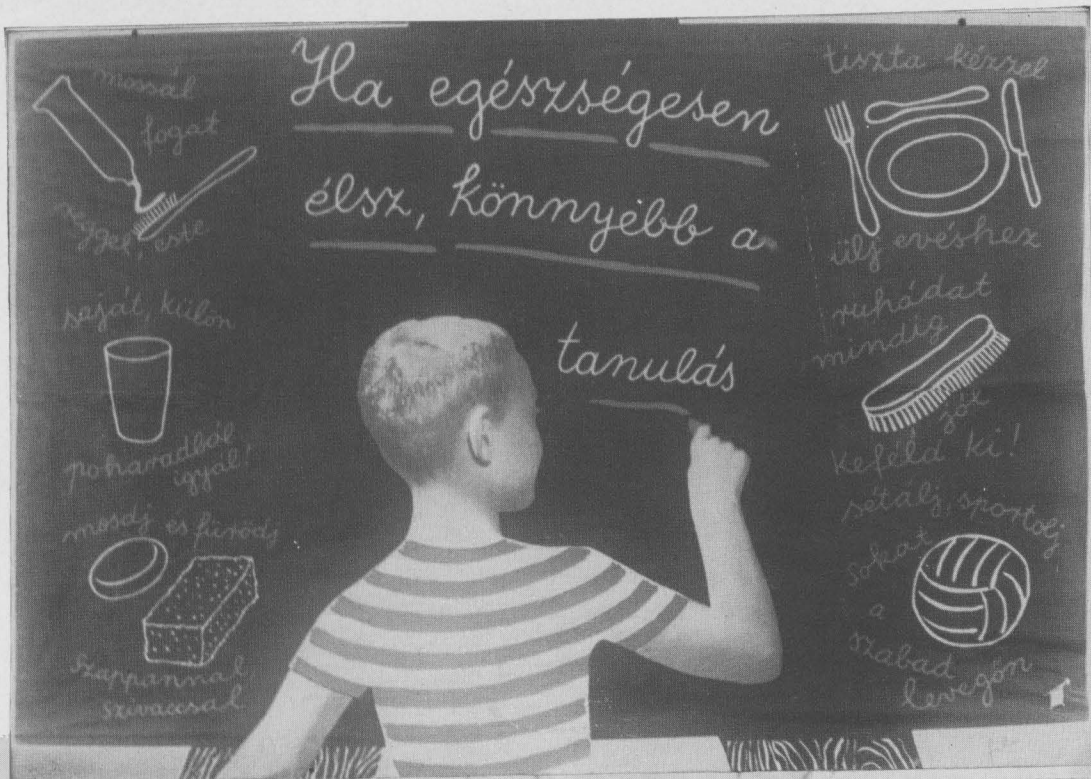 Ha egészségesen
élsz, könnyebb a
tanulás
mossál
fogat
reggel, este
saját, külön
poharadból
igyál!
mosdj és fürödj
szappannal
szivaccsal
tiszta kézzel
ülj evéshez
ruhádat
mindig
jól
keféld ki!
sétálj, sportolj
sokat
a
szabad
levegőn